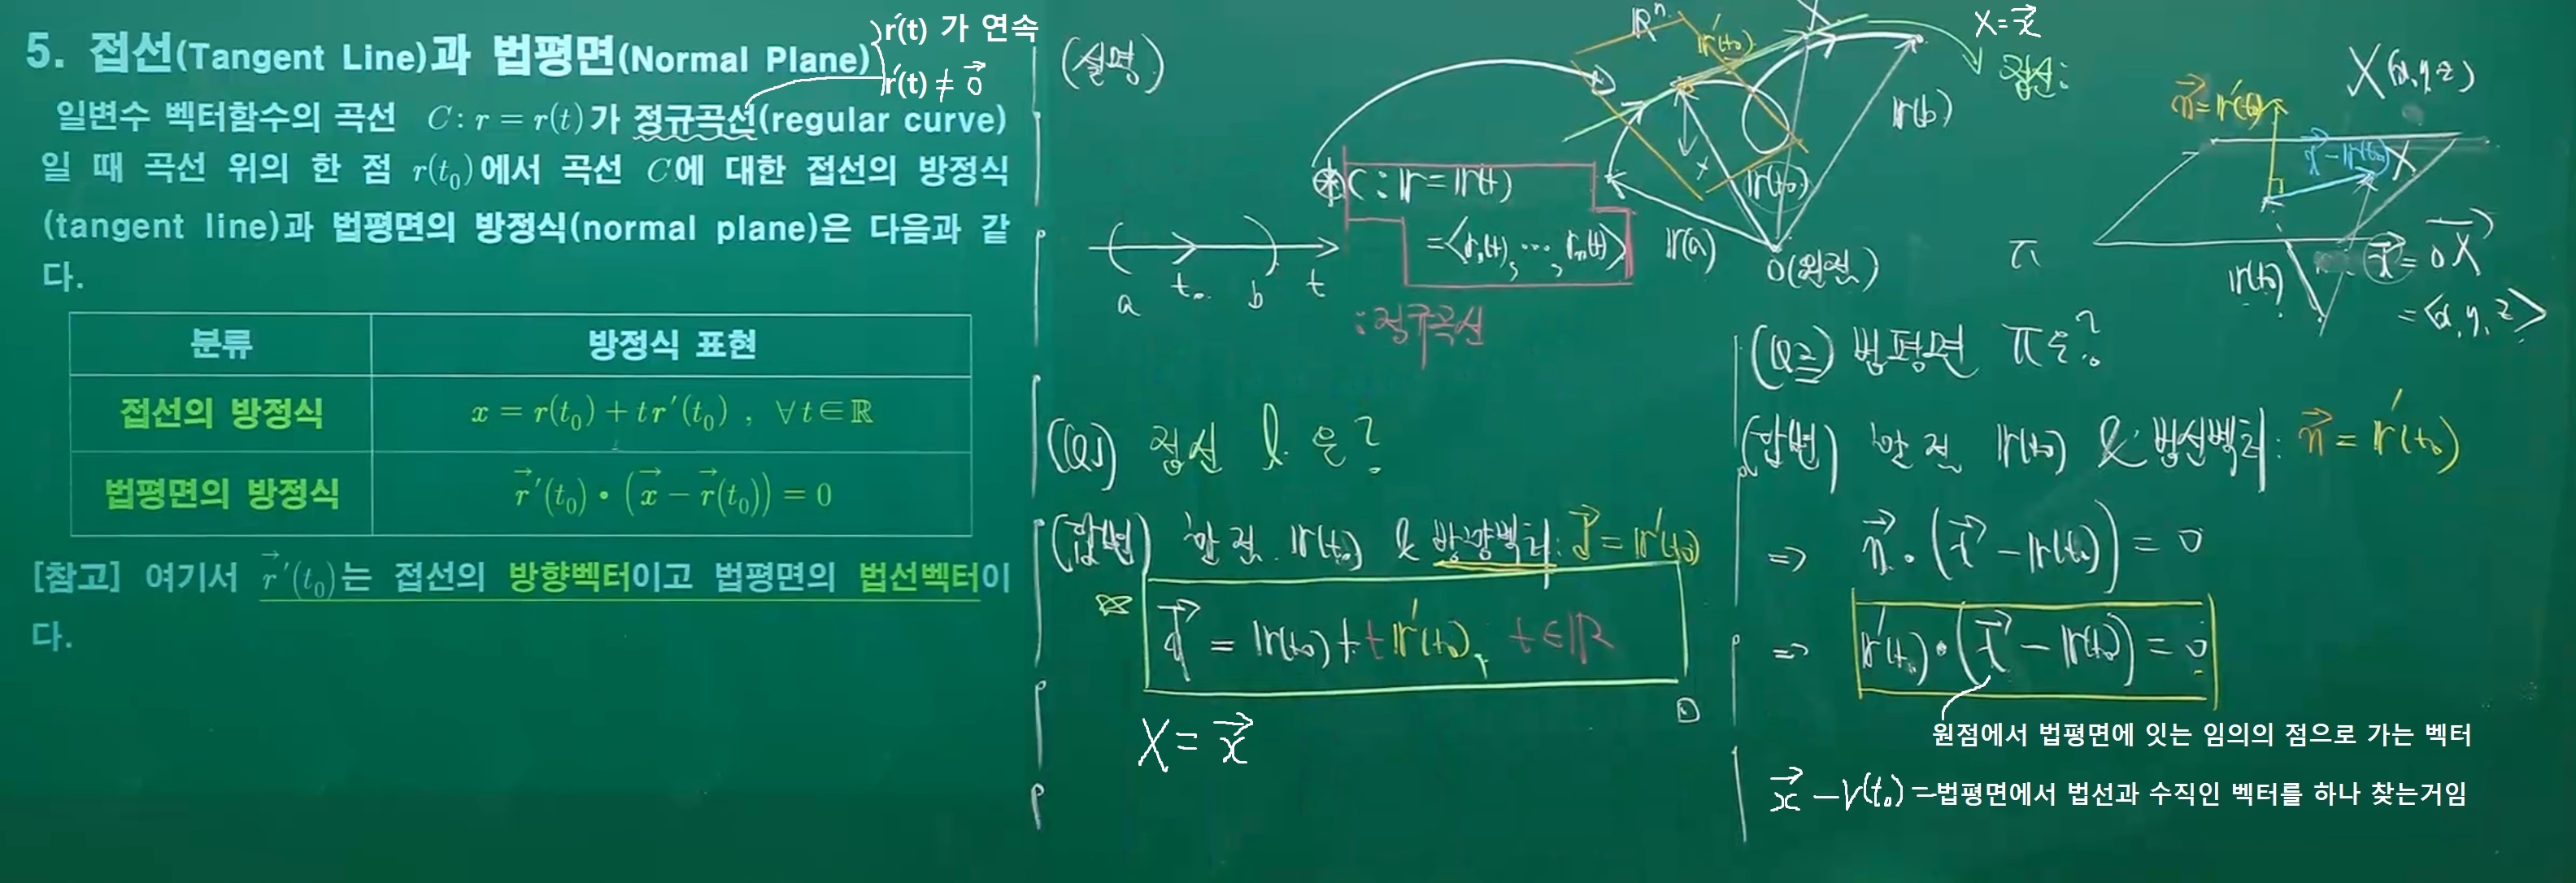 5. 접선(Tangent Line)과 법평면(Normal Plane)
r′(t) 가 연속
r′(t) ≠ 0⃗
일변수 벡터함수의 곡선 C : r = r(t)가 정규곡선(regular curve)
일 때 곡선 위의 한 점 r(t₀)에서 곡선 C에 대한 접선의 방정식
(tangent line)과 법평면의 방정식(normal plane)은 다음과 같
다.
분류 방정식 표현
접선의 방정식 x = r(t₀) + t r′(t₀) , ∀t∈ℝ
법평면의 방정식 r⃗′(t₀) • (x⃗ − r⃗(t₀)) = 0
[참고] 여기서 r⃗′(t₀)는 접선의 방향벡터이고 법평면의 법선벡터이
다.
(설명)
ℝⁿ
r′(t₀)
X
X = x⃗
접선:
r(b)
⊛ C : r = r(t)
= <r₁(t), ⋯, rₙ(t)>
: 정규곡선
a t₀ b t
r(a)
r(t₀)
O(원점)
(Q1) 접선 l 은?
(답변) 한 점 r(t₀) & 방향벡터: d⃗ = r′(t₀)
x⃗ = r(t₀) + t r′(t₀), t∈ℝ
X = x⃗
X(x, y, z)
n⃗ = r′(t₀)
x⃗ − r(t₀)
X
π
r(t₀)
x⃗ = OX⃗
= <x, y, z>
(Q2) 법평면 π은?
(답변) 한 점 r(t₀) & 법선벡터: n⃗ = r′(t₀)
⇒ n⃗ • (x⃗ − r(t₀)) = 0
⇒ r′(t₀) • (x⃗ − r(t₀)) = 0
원점에서 법평면에 잇는 임의의 점으로 가는 벡터
x⃗ − r(t₀) = 법평면에서 법선과 수직인 벡터를 하나 찾는거임